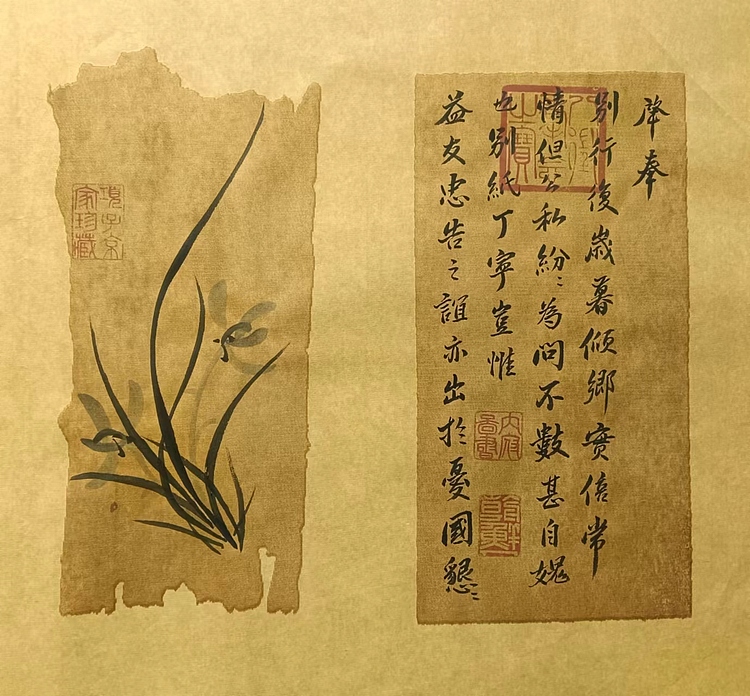 奉
别行復歲暮傾鄉實倍常
情但公私紛〻為問不數甚自媿
也别紙丁寧豈惟
益友忠告之誼亦出於憂國懇〻
項子京
家珍藏